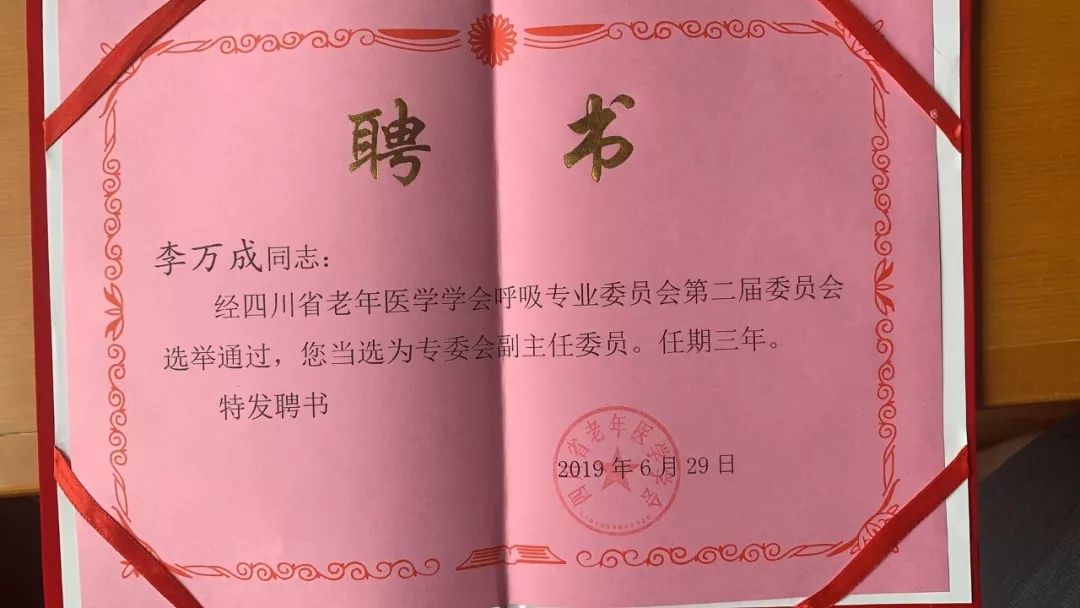 聘 书
李万成同志：
经四川省老年医学学会呼吸专业委员会第二届委员会
选举通过，您当选为专委会副主任委员。任期三年。
特发聘书
四川省老年医学学会
2019 年 6 月 29 日